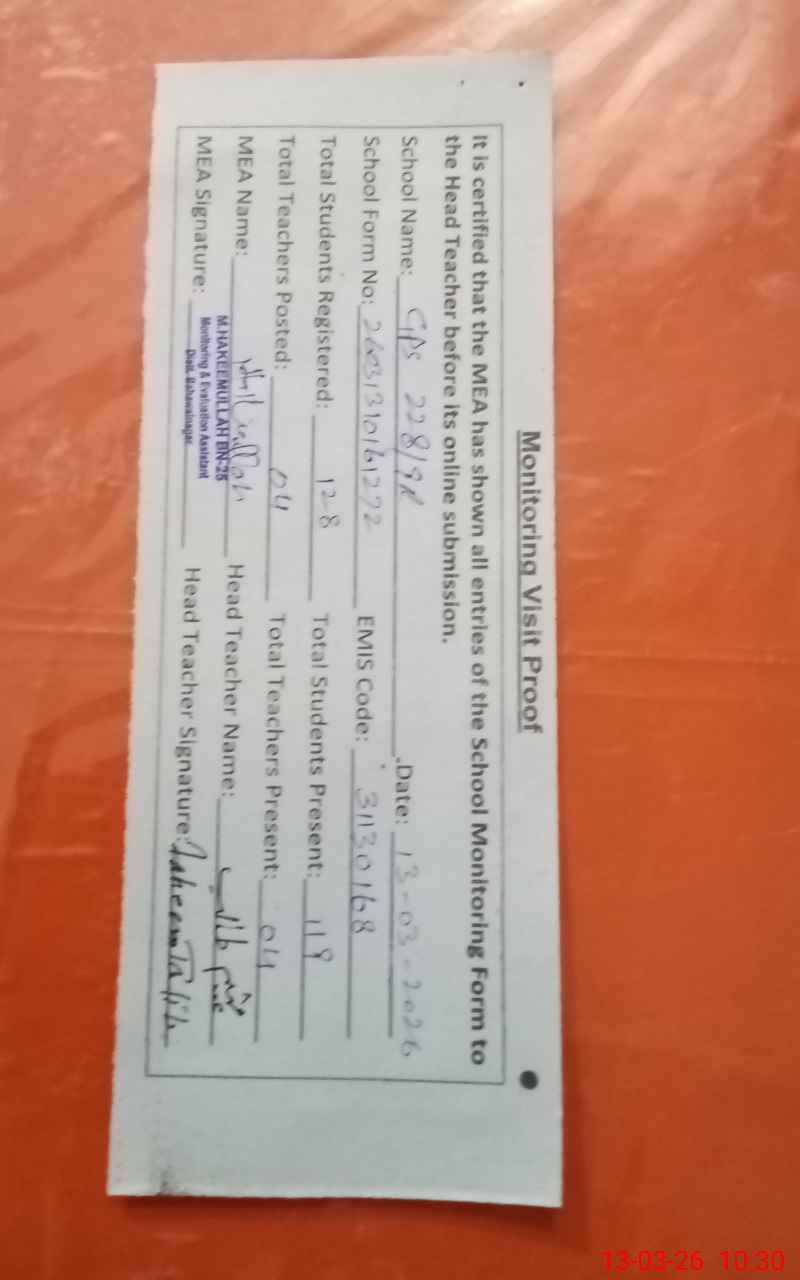 Monitoring Visit Proof
It is certified that the MEA has shown all entries of the School Monitoring Form to
the Head Teacher before its online submission.
School Name: GPS 228/9R Date: 13-03-2026
School Form No: 26031310161272 EMIS Code: 31130168
Total Students Registered: 128 Total Students Present: 119
Total Teachers Posted: 04 Total Teachers Present: 04
MEA Name: Head Teacher Name:
MEA Signature: Head Teacher Signature: Faheem Talib
M.HAKEEMULLAH BN-25
Monitoring & Evaluation Assistant
Distt. Bahawalnagar.
13-03-26 10:30